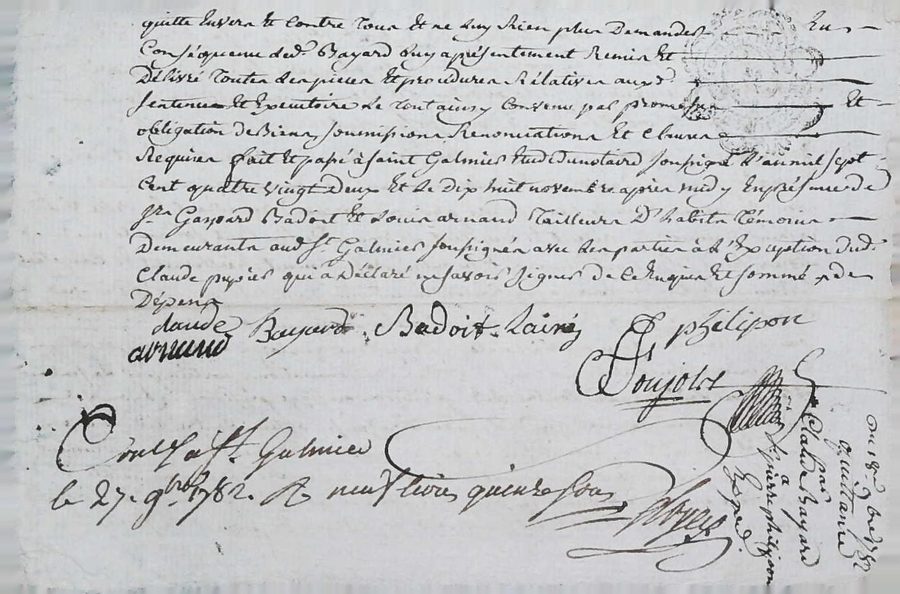 quitte Envers Et Contre Tous Et ne luy Rien plus Demander En
Conséquence led.t Bayard luy a présentement Remis Et
Délivré Toutes les pieces Et procedures Rélatives auxd.
sentence Et Executoire Le Tout ainsy Convenu par promesse Et
obligation de Biens soumissions Renonciations Et Clauses
Requises fait Et passé à Saint Galmier Etude du notaire soussigné L'an mil sept
Cent quatre vingt deux Et Le Dix huit novembre après midy En présence de
Gaspard Badoit Et Louis arnaud Tailleurs D'habits Témoins
Demeurants aud. St. Galmier soussignés avec les parties à L'Exception dud.
Claude qui à Déclaré ne savoir signer de ce Enquis Et sommé
Dépens
claude Bayard Badoit Lainé philipon
arnaud
Soujols
Con.lé a St. Galmier
le 27. 9bre 1782. R. neuf livres quinze sous
du 18e 9bre 1782
quittance
par
Claude Bayard
a
pierre philipon
Exped.